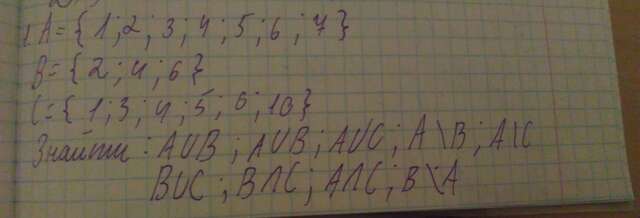 1 A={1;2;3;4;5;6;7}
B={2;4;6}
C={1;3;4;5;6;10}
Знайти: A∪B; A∪B; A∪C; A\B; A\C
B∪C; B∩C; A∩C; B\A